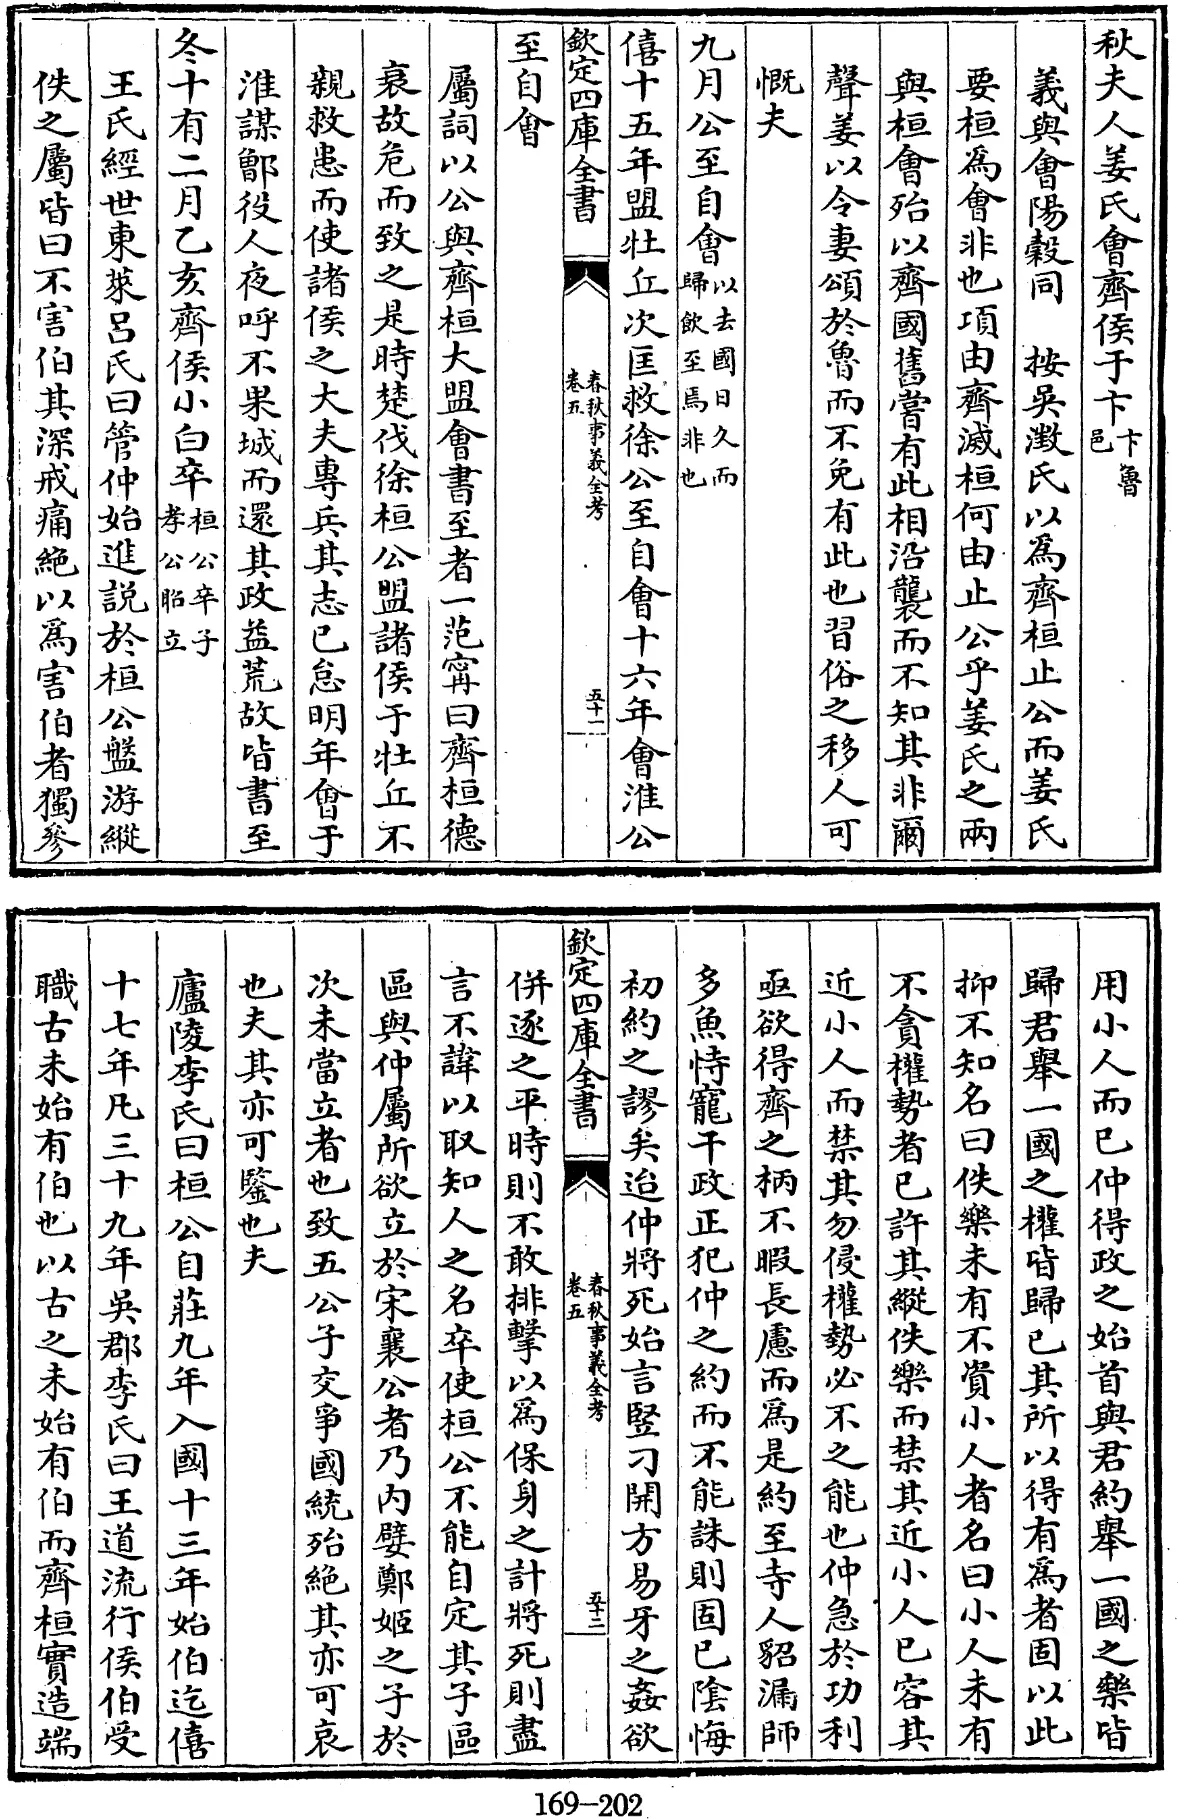 秋夫人姜氏會齊侯于卞卞魯邑
義與會陽穀同　按吳澂氏以爲齊桓止公而姜氏
要桓爲會非也項由齊滅桓何由止公乎姜氏之兩
與桓會殆以齊國舊嘗有此相沿襲而不知其非爾
聲姜以令妻頌於魯而不免有此也習俗之移人可
慨夫
九月公至自會以去國日久而歸飲至焉非也
僖十五年盟壯丘次匡救徐公至自會十六年會淮公
欽定四庫全書
春秋事義全考
卷五
五十一
至自會
屬詞以公與齊桓大盟會書至者一范甯曰齊桓德
衰故危而致之是時楚伐徐桓公盟諸侯于壯丘不
親救患而使諸侯之大夫專兵其志已怠明年會于
淮謀鄫役人夜呼不果城而還其政益荒故皆書至
冬十有二月乙亥齊侯小白卒桓公卒子孝公昭立
王氏經世東萊呂氏曰管仲始進説於桓公盤游縱
佚之屬皆曰不害伯其深戒痛絶以爲害伯者獨參
用小人而已仲得政之始首與君約舉一國之樂皆
歸君舉一國之權皆歸已其所以得有爲者固以此
抑不知名曰佚樂未有不資小人者名曰小人未有
不貪權勢者已許其縱佚樂而禁其近小人已容其
近小人而禁其勿侵權勢必不之能也仲急於功利
亟欲得齊之柄不暇長慮而爲是約至寺人貂漏師
多魚恃寵干政正犯仲之約而不能誅則固已陰悔
初約之謬矣迨仲將死始言豎刁開方易牙之姦欲
欽定四庫全書
春秋事義全考
卷五
五十二
併逐之平時則不敢排擊以爲保身之計將死則盡
言不諱以取知人之名卒使桓公不能自定其子區
區與仲屬所欲立於宋襄公者乃内嬖鄭姬之子於
次未當立者也致五公子交爭國統殆絶其亦可哀
也夫其亦可鑒也夫
廬陵李氏曰桓公自莊九年入國十三年始伯迄僖
十七年凡三十九年吳郡李氏曰王道流行侯伯受
職古未始有伯也以古之未始有伯而齊桓實造端
169-202